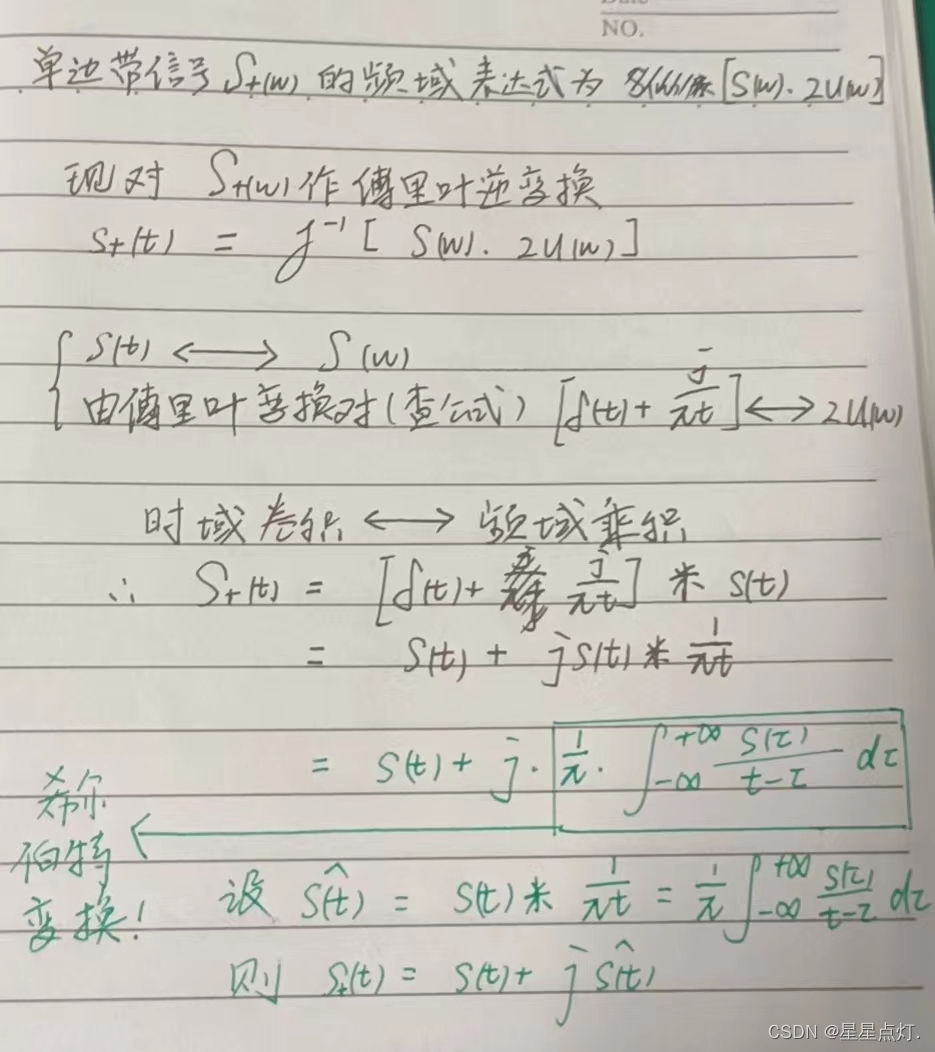 NO.
单边带信号 S₊(w) 的频域表达式为 [S(w)·2U(w)]
现对 S₊(w) 作傅里叶逆变换
s₊(t) = f⁻¹[ S(w)· 2U(w)]
{ s(t) ⟷ S(w)
由傅里叶变换对(查公式) [δ(t) + j/πt] ⟷ 2U(w)
时域卷积 ⟷ 频域乘积
∴ S₊(t) = [δ(t) + j/πt] * s(t)
= s(t) + j s(t) * 1/πt
= s(t) + j · 1/π · ∫₋∞⁺∞ s(τ)/(t-τ) dτ
希尔
伯特
变换!
设 ŝ(t) = s(t) * 1/πt = 1/π ∫₋∞⁺∞ s(τ)/(t-τ) dτ
则 s₊(t) = s(t) + j ŝ(t)
CSDN @星星点灯.